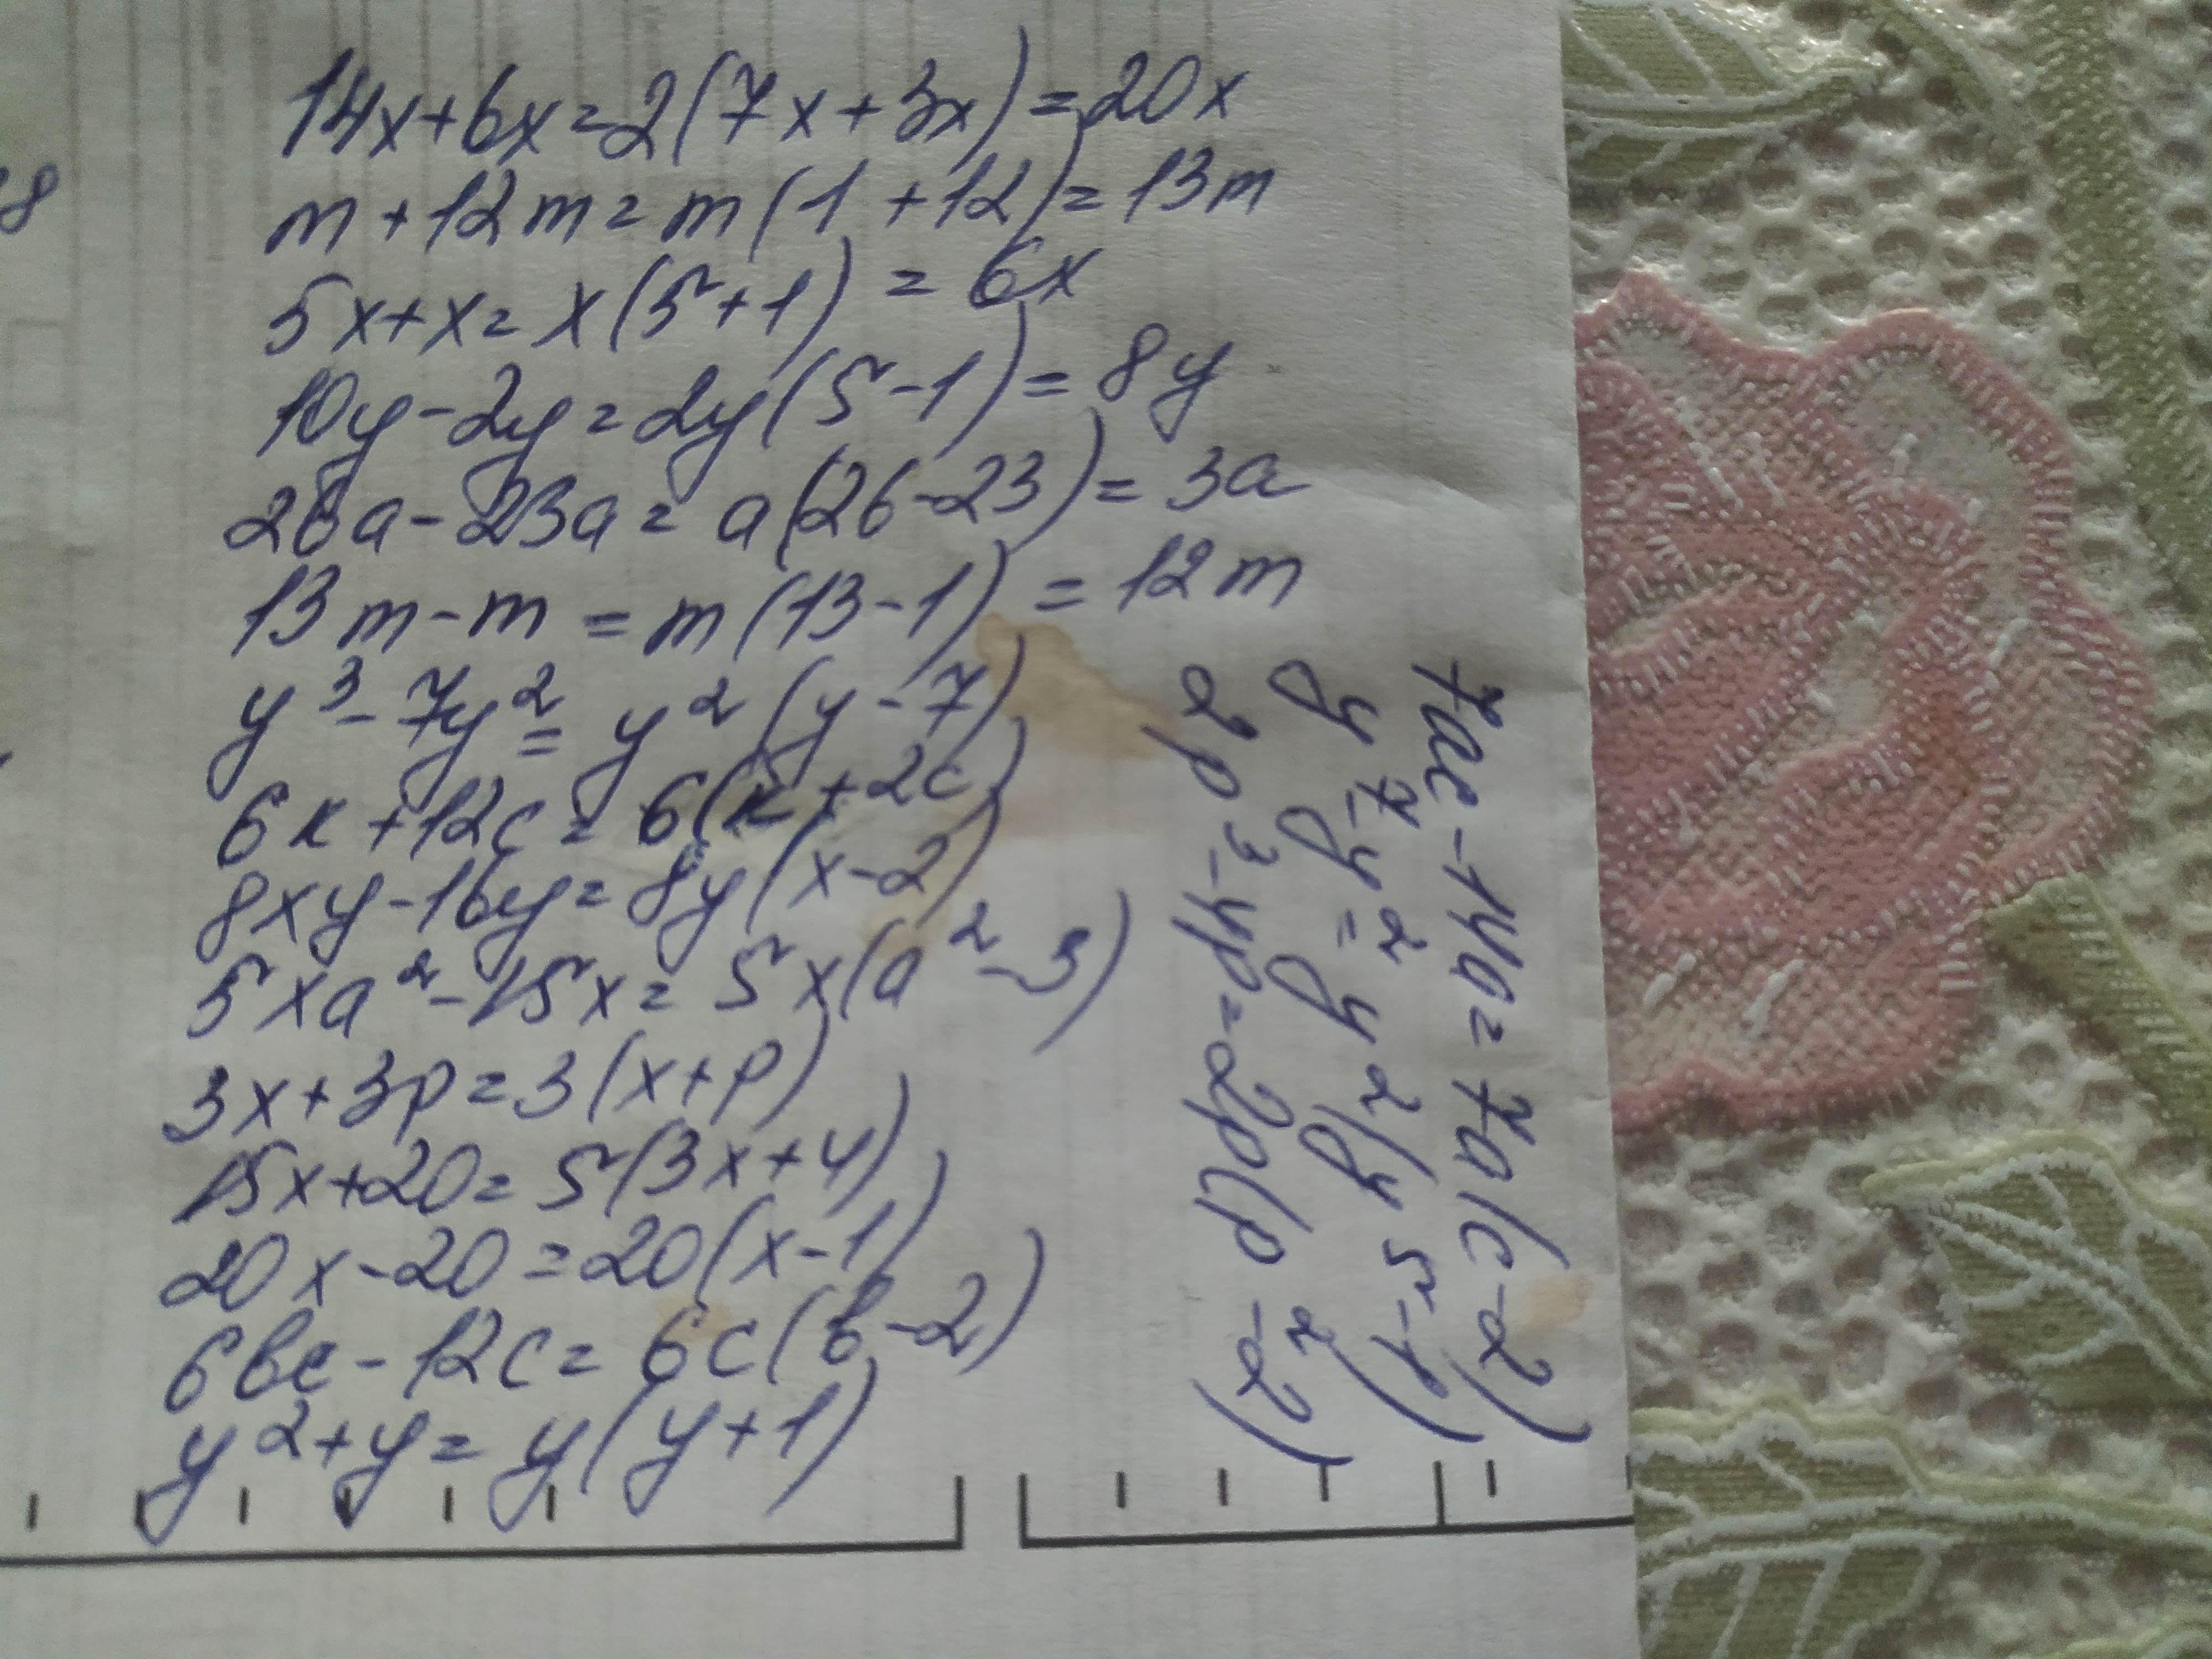 8
14x+6x=2(7x+3x)=20x
m+12m=m(1+12)=13m
5x+x=x(5+1)=6x
10y-2y=2y(5-1)=8y
26a-23a=a(26-23)=3a
13m-m=m(13-1)=12m
y³-7y²=y²(y-7)
6k+12c=6(k+2c)
8xy-16y=8y(x-2)
5xa²-15x=5x(a²-3)
3x+3p=3(x+p)
15x+20=5(3x+4)
20x-20=20(x-1)
6bc-12c=6c(b-2)
y²+y=y(y+1)
7ac-14a=7a(c-2)
y⁷-y²=y²(y⁵-1)
2p³-4p=2p(p²-2)